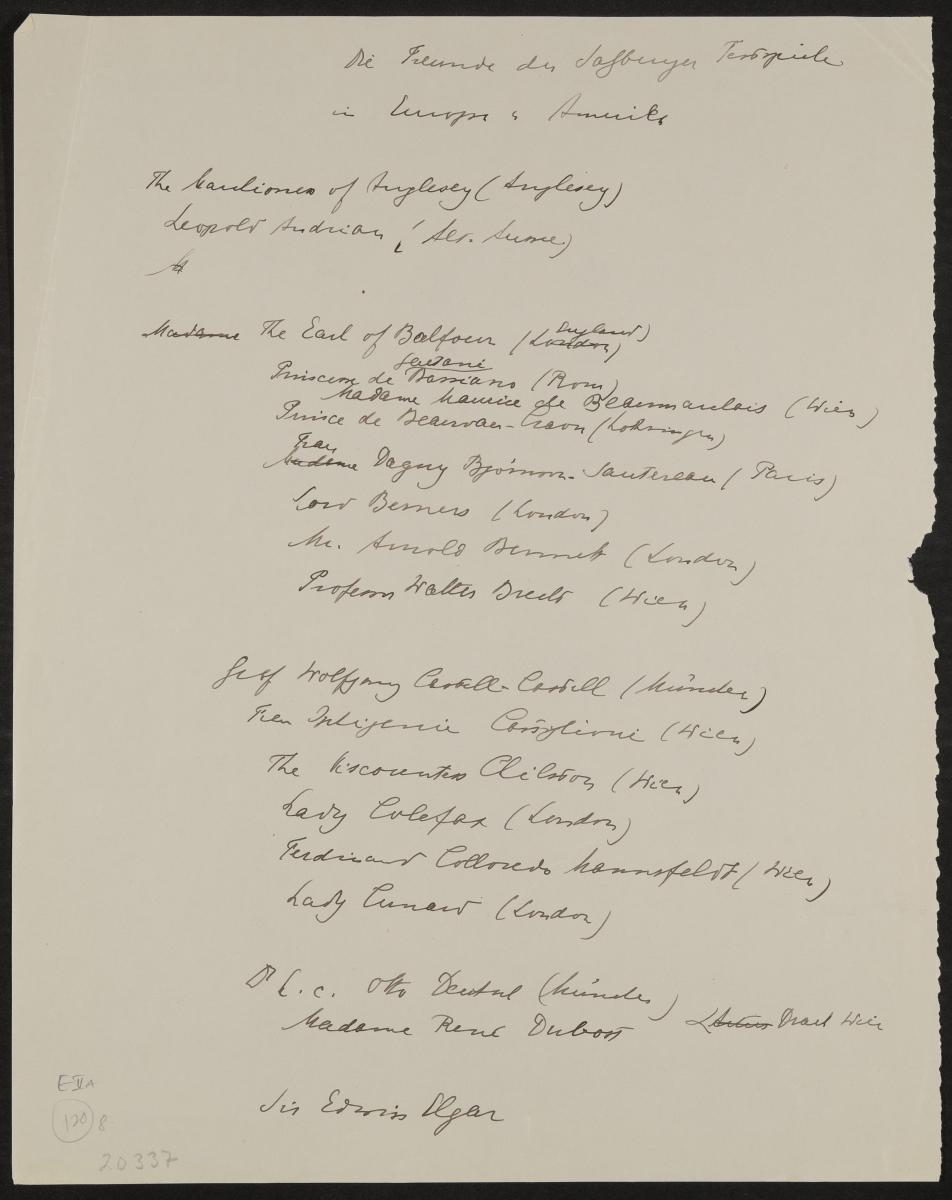 Die Freunde der Salzburger Festspiele
in Europa u Amerika
The Marchioness of Anglesey (Anglesey)
Leopold Andrian (Alt. Aussee)
England)
Madame The Earl of Balfour (London)
Gaetani
Princesse de Bassiano (Rom)
Madame Maurice de Beaumarchais (Wien)
Prince de Beauvau-Craon (Lothringen)
Frau
Madame Dagny Björnson-Sautereau (Paris)
Lord Berners (London)
Mr. Arnold Bennet (London)
Professor Walter Brecht (Wien)
Graf Wolfgang Castell-Castell (München)
Frau Iphigenie Castiglioni (Wien)
The Viscountess Chilston (Wien)
Lady Colefax (London)
Ferdinand Colloredo Mannsfeldt (Wien)
Lady Cunard (London)
Dr h. c. Otto (München)
Madame René Dubost Wien
Sir Edwin Elgar
E II A
120 8
20337